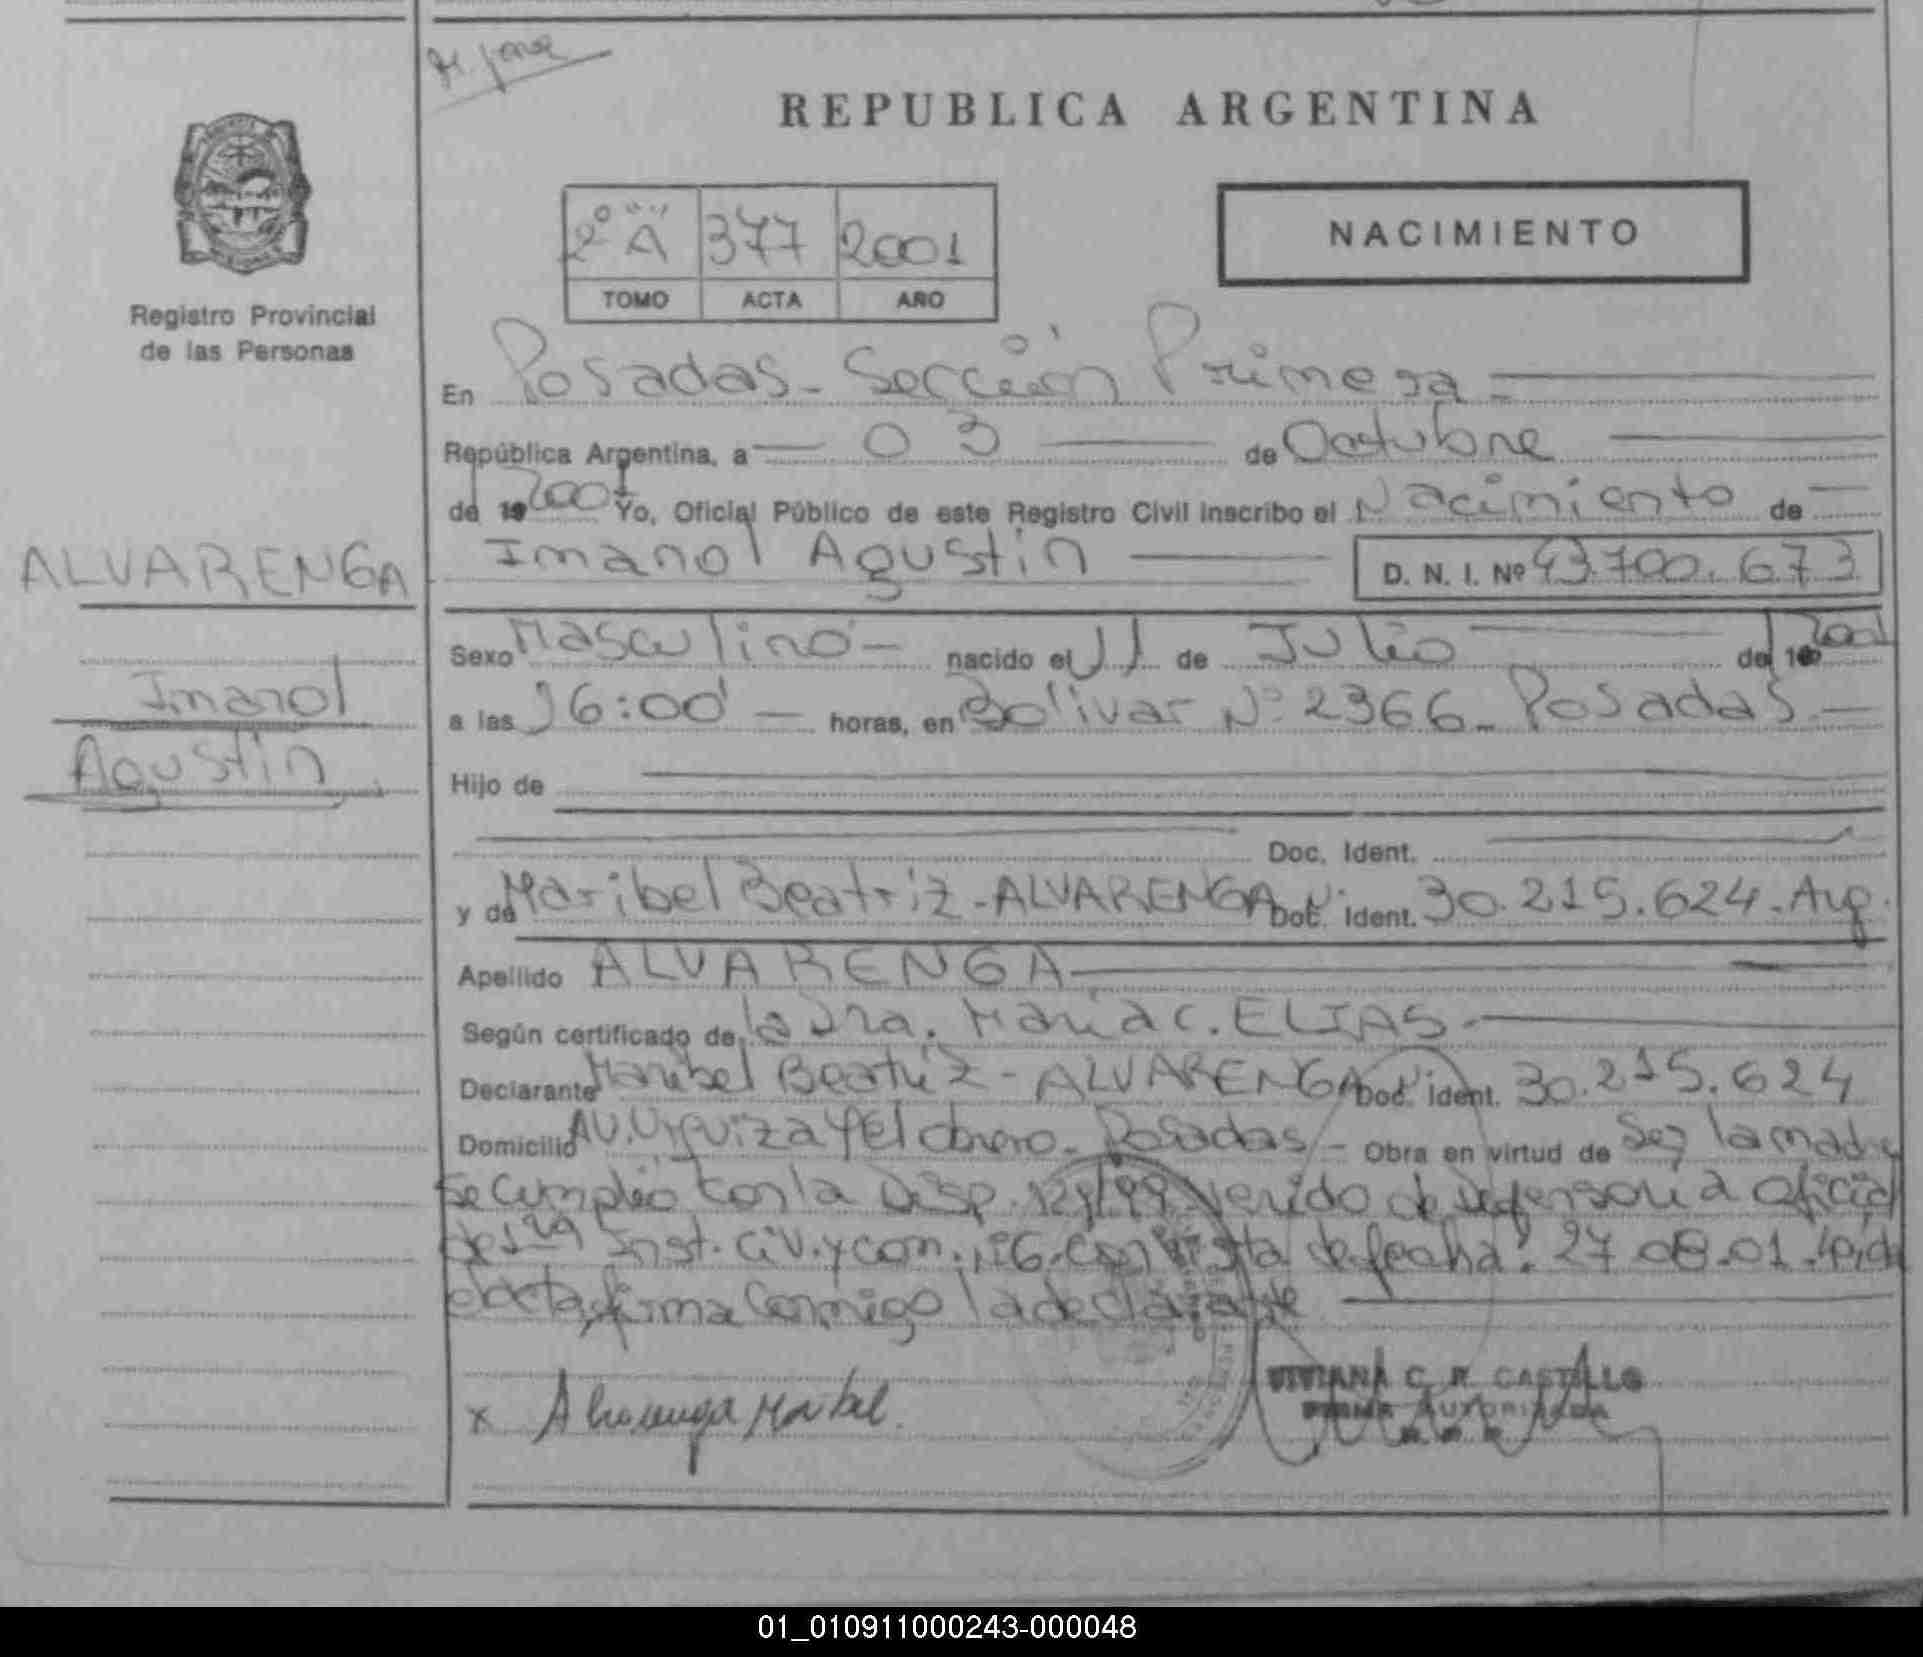 REPUBLICA ARGENTINA
2º "A" 377 2001
TOMO ACTA AÑO
NACIMIENTO
Registro Provincial
de las Personas
ALVARENGA
Imanol
Agustin
En Posadas - Sección Primera
República Argentina, a 03 de Octubre
de 2001 Yo, Oficial Público de este Registro Civil inscribo el Nacimiento de
Imanol Agustin D. N. I. Nº 43.700.673
Sexo Masculino nacido el 11 de Julio de 2001
a las 16:00 horas, en Bolivar Nº 2366 - Posadas
Hijo de
Doc. Ident.
y de Maribel Beatriz - ALVARENGA Doc. Ident. 30.215.624 - Arg.
Apellido ALVARENGA
Según certificado de la Dra. Maria C. ELIAS.
Declarante Maribel Beatriz - ALVARENGA Doc. Ident. 30.215.624
Domicilio AV. Urquiza y el obrero - Posadas - Obra en virtud de Ser la madre
Se cumplió con la Disp. de Defensoría oficial
Inst. Civ. y Com. de fecha: 27.08.01.
el acta, firma conmigo la declarante
x Alvarenga Maribel
VIVIANA C. R. CASTILLO
FIRMA AUTORIZADA
01_010911000243-000048